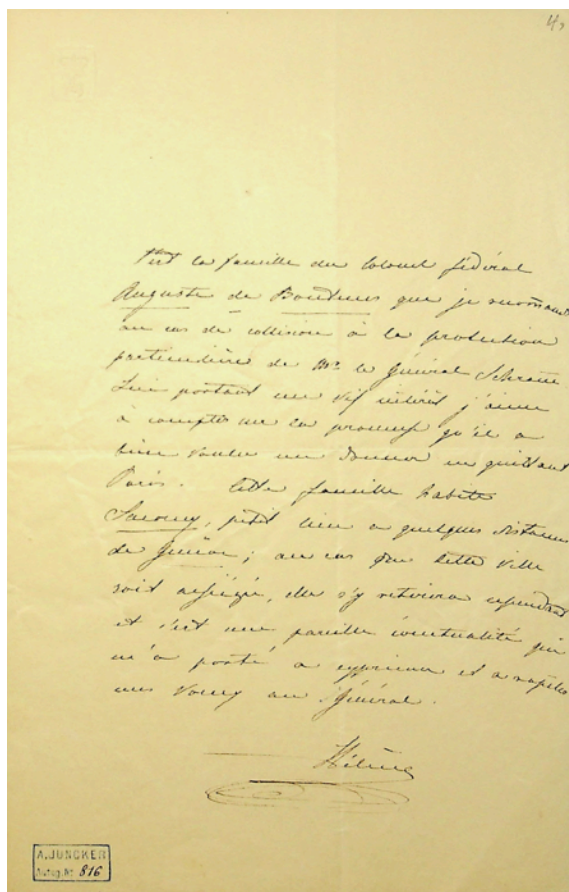 4,
C'est la famille du Colonel fédéral
Auguste de que je
au cas de collision à la protection
particulière de Mr le Général Schramm
Lui portant un vif intérêt j'aime
à compter sur la promesse qu'il a
bien voulu me donner en quittant
Paris. Cette famille habite
Saconey, petit lieu a quelques distances
de Genève; au cas que cette ville
soit assiégée, elle s'y retirera cependant
et c'est une pareille éventualité qui
m'a porté a exprimer et a rappeler
mes voeux au Général.
Hélène
A. JUNCKER
Autog. Nr. 816